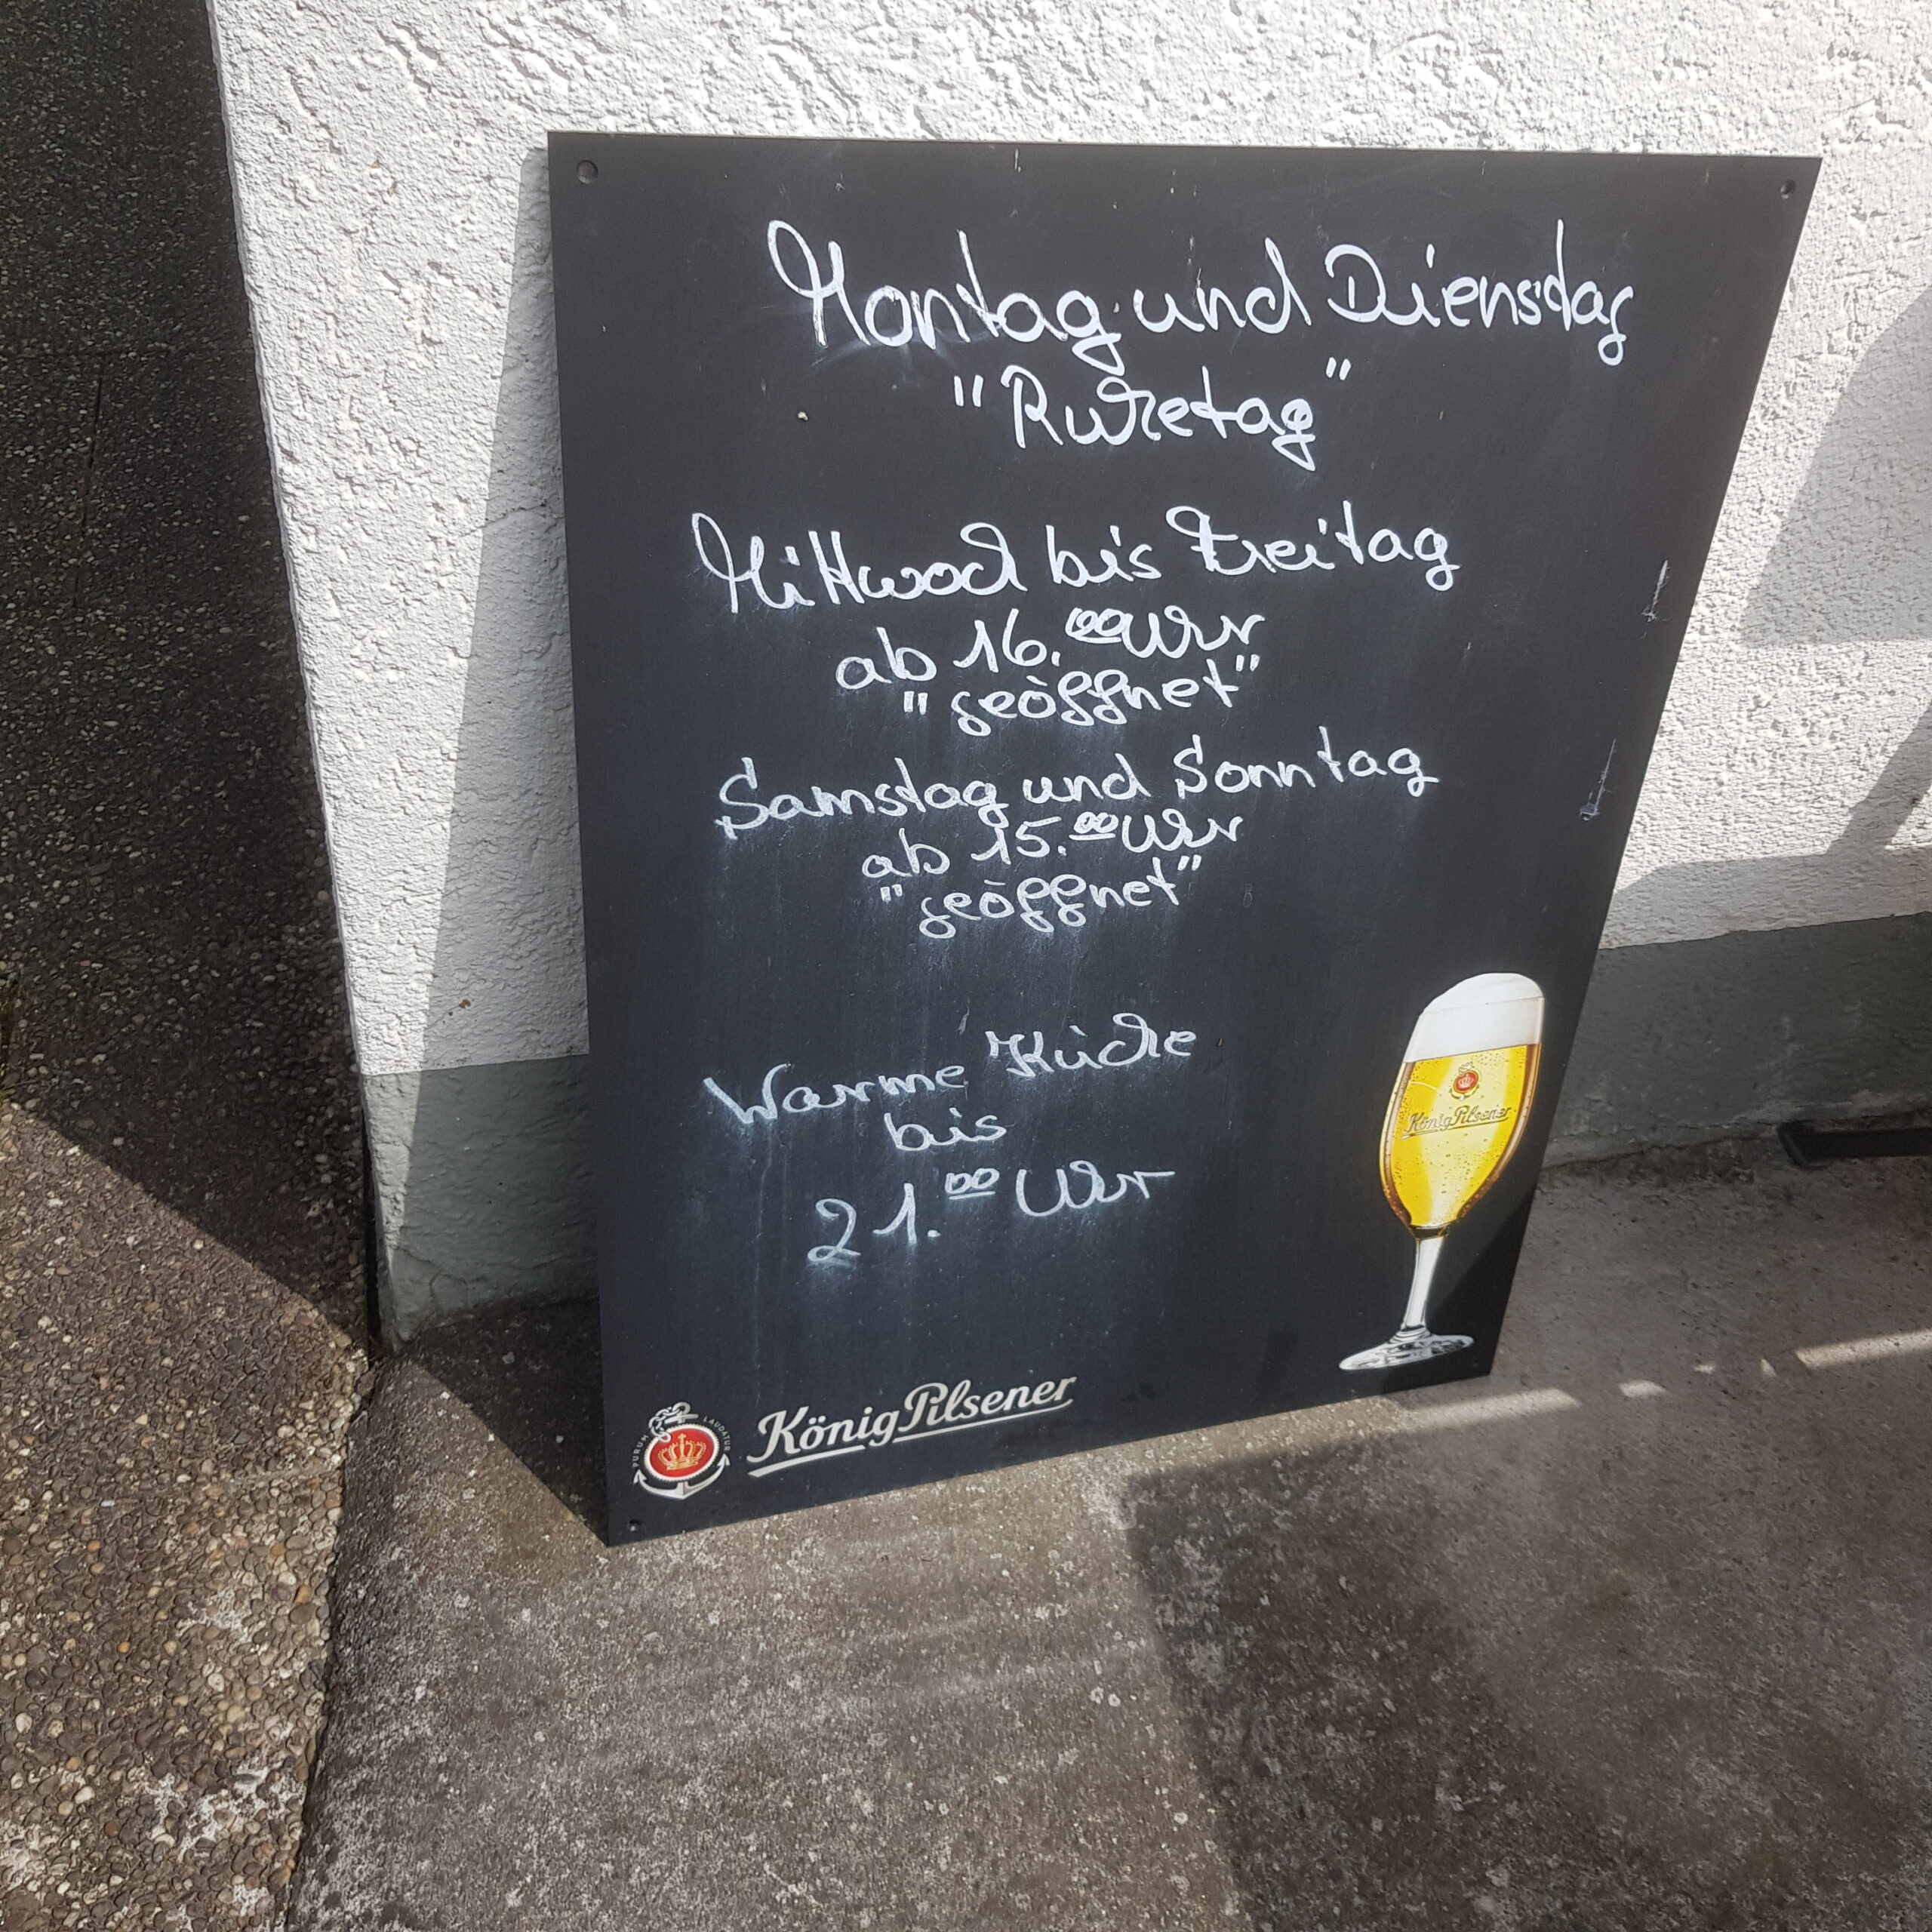 Montag und Dienstag
"Ruhetag"
Mittwoch bis Freitag
ab 16.00 Uhr
"geöffnet"
Samstag und Sonntag
ab 15.00 Uhr
"geöffnet"
Warme Küche
bis
21.00 Uhr
König Pilsener
PURUM LAUDATUR
König Pilsener